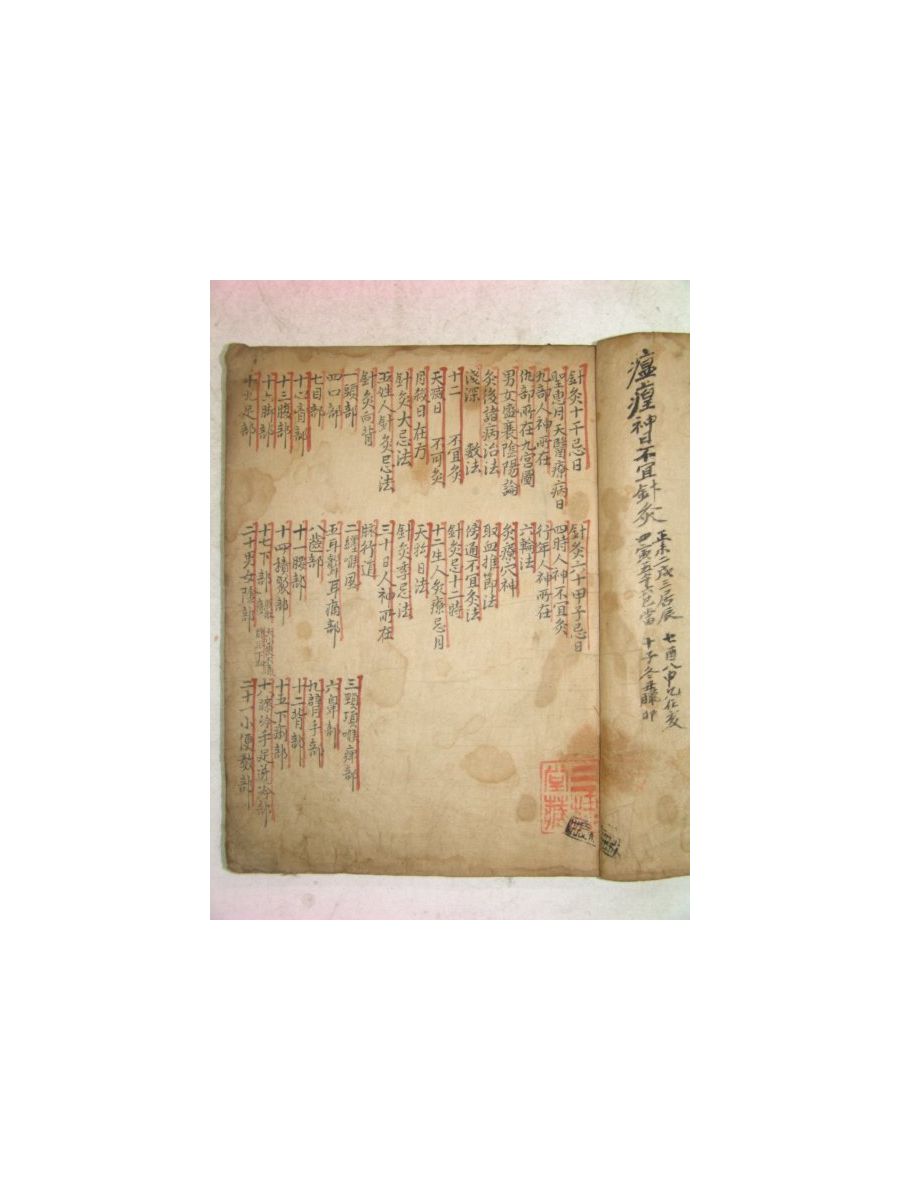 瘟𤺥神日不宜針灸
正未二戌三辰辰
四寅五午六巳當
七酉八申九在亥
十子冬丑臘卯
針灸十干忌日
聖惠月天醫療病日
九部人神所在
仇部所在九宮圖
男女盛衰陰陽論
灸後諸病治法
淺深 数法
十二 不宜灸
天滅日 不可灸
月殺日在方
針灸大忌法
五姓人針灸忌法
針灸向背
一頭部
四口部
七目部
十心胷部
十三腹部
十六脚部
十九足部
針灸六十甲子忌日
四時人神不宜灸
行年人神所在
六輪法
灸療穴神
取血推節法
傍通不宜灸法
針灸忌十二時
十二生人灸療忌月
天狗日法
針灸季忌法
三十日人神所在
脉行道
二纏喉風
五耳聾耳痛部
八齒部
十一腰部
十四積聚部
十七下部
二十男女陰部
三頸項喉痺部
六鼻部
九臂手部
十二背部
十五下痢部
十八膝冷手足逆冷部
二十一小便数部
堂藏